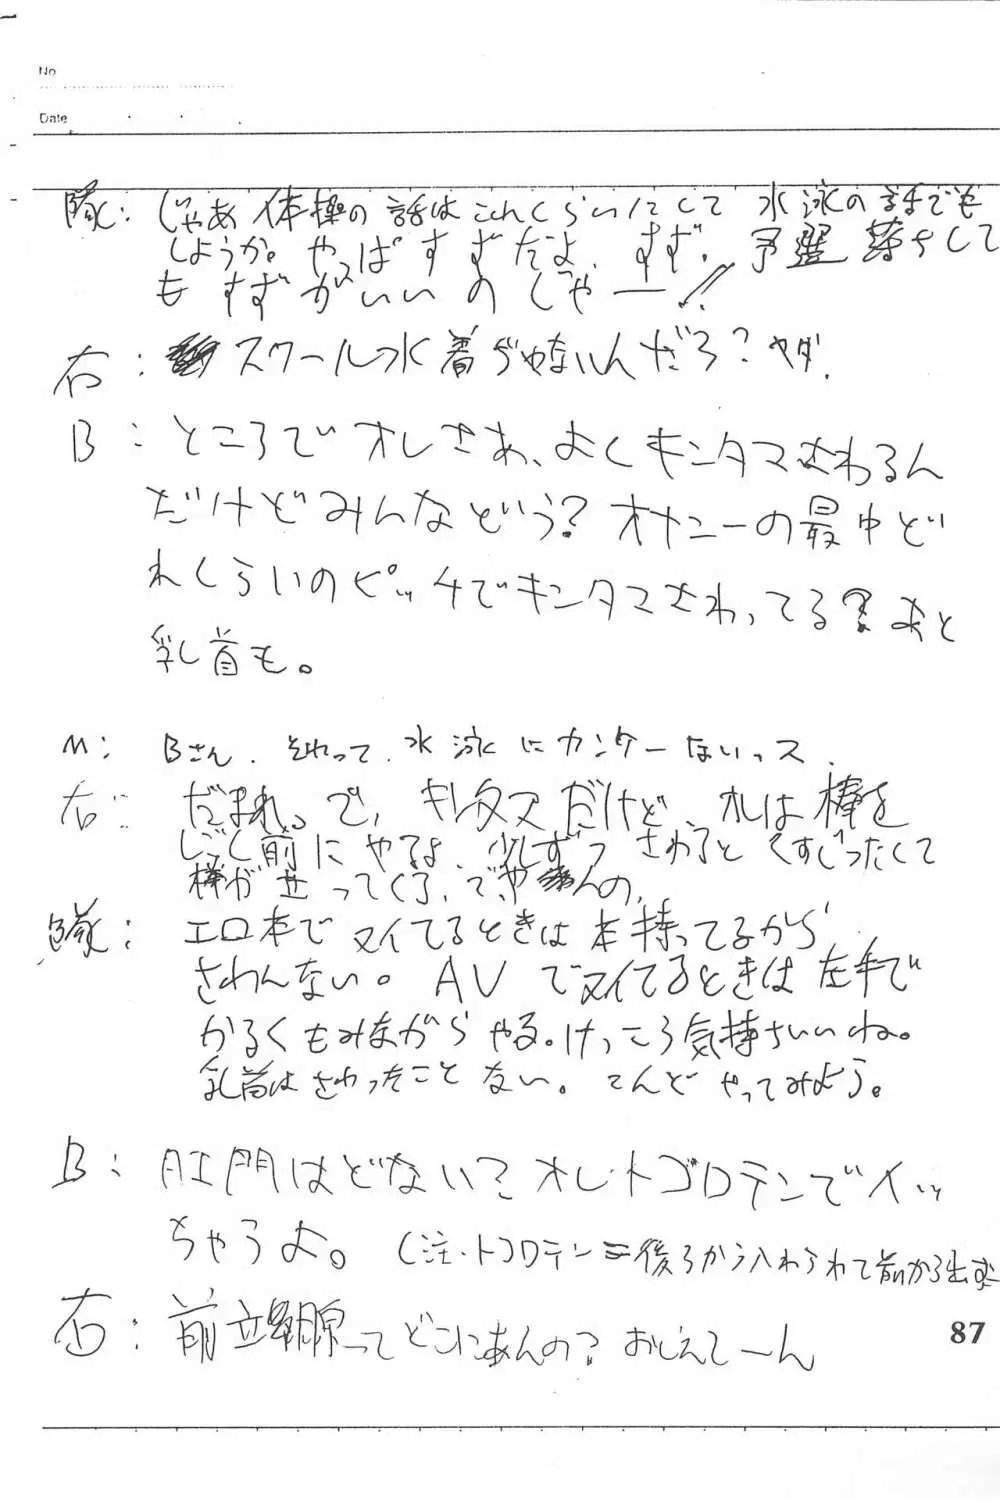 No
Date
隊: じゃあ体操の話はこれくらいにして 水泳の話でも
しようか。やっぱすずだよ、すず。予選落ちして
もすずがいいのじゃー!!
右: スクール水着ぢゃないんだろ?ヤダ.
B: ところでオレさあ、よくキンタマさわるん
だけどみんなどう?オナニーの最中ど
れくらいのピッチでキンタマさわってる?あと
乳首も。
M: Bさん.それって.水泳にカンケーないっス.
右: だまれ。で,キンタマだけど、オレは棒を
しごく前にやるよ.少しずつさわるとくすぐったくて
棒がせってくる.でやんの.
隊: エロ本でヌイてるときは本持ってるから
さわんない。AVでヌイてるときは左手で
かるくもみながらやる。けっこう気持ちいいね。
乳首はさわったことない。こんどやってみよう。
B: 肛門はどない? オレトコロテンでイッ
ちゃうよ。(注・トコロテン=後ろから入れられて前から出す
右: 前立腺ってどこにあんの?おしえてーん
87